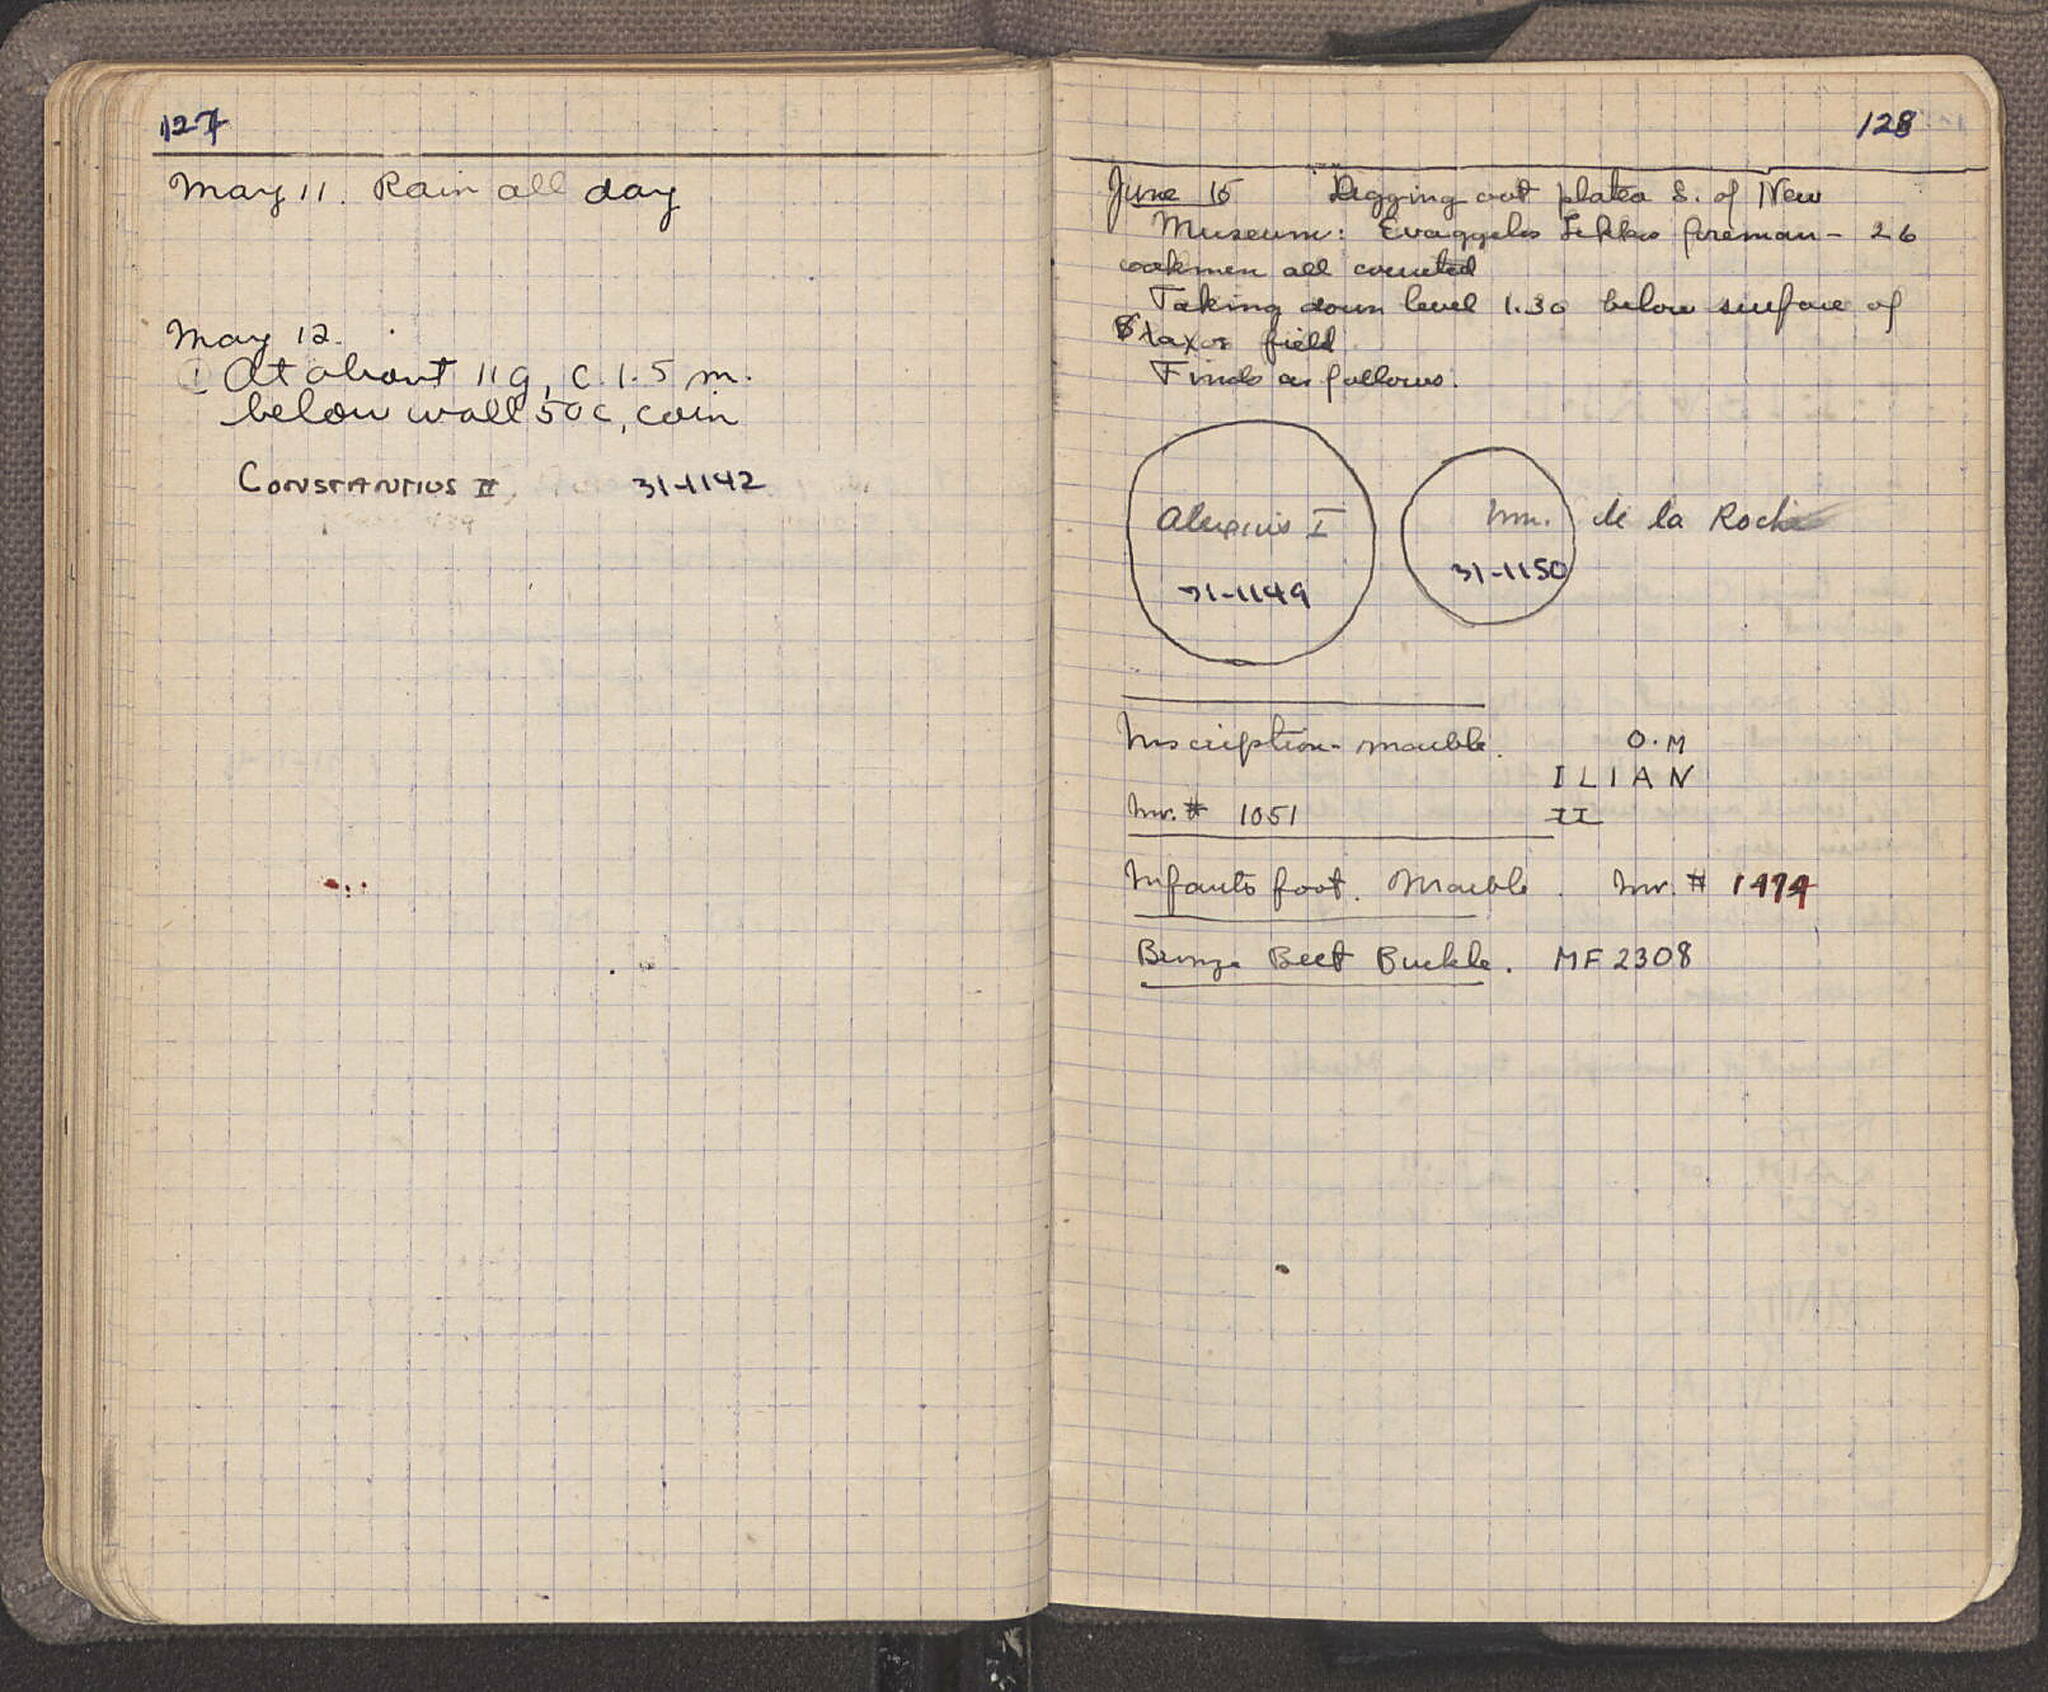 127
May 11. Rain all day
May 12.
① At about 11g, c. 1.5 m.
below wall 50c, coin
CONSTANTIUS II 31-1142
128
June 15 Digging out platea S. of New
Museum: Evaggelos Lekkas foreman - 26
workmen all counted
Taking down level 1.30 below surface of
field
Finds as follows.
Alexius I
31-1149
de la Roche
31-1150
Inscription - marble. O.M
ILIAN
II
Inv. # 1051
Infants foot. Marble. Inv. # 1474
Bronze Belt Buckle. MF 2308